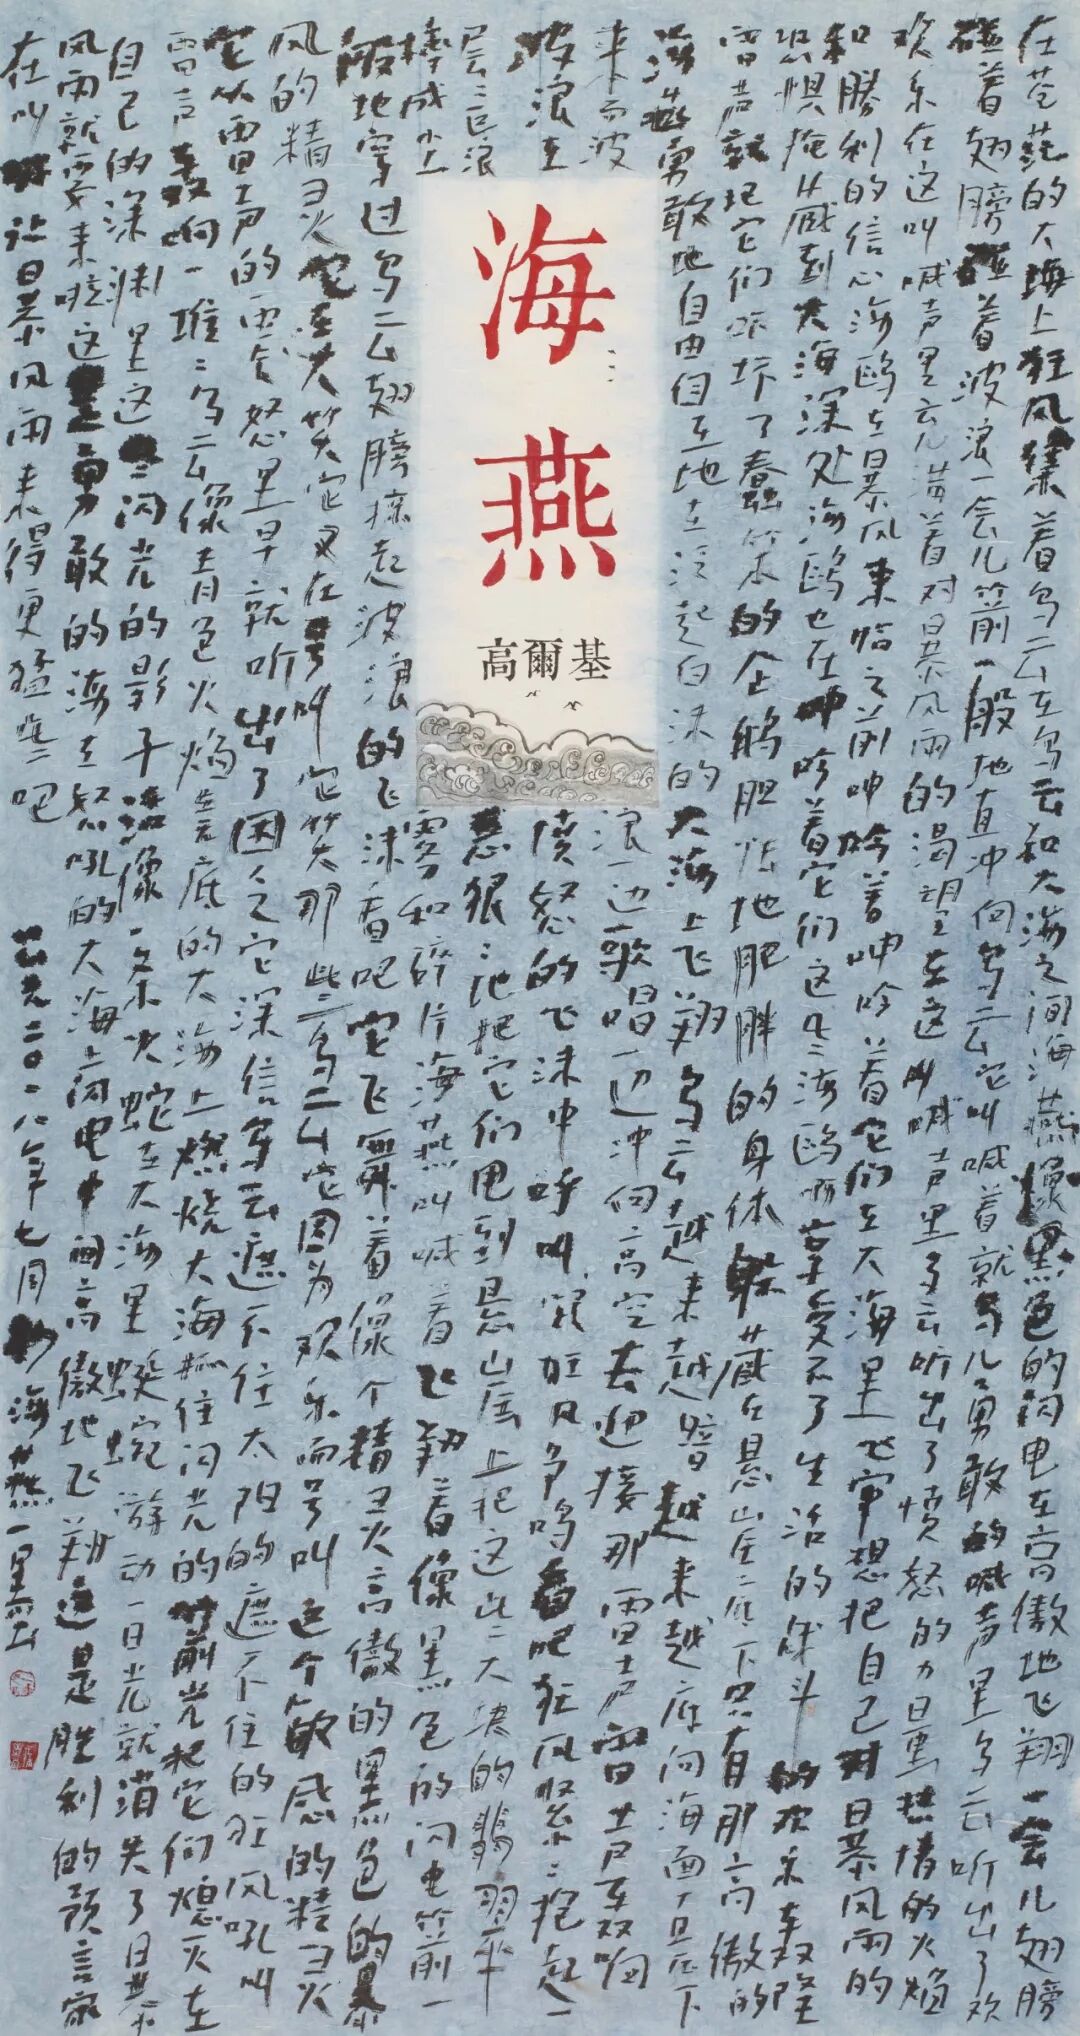 海燕
高爾基
在苍茫的大海上狂风集着乌云在乌云和大海之间海燕像黑色的闪电在高傲地飞翔一会儿翅膀
碰着翅膀碰着波浪一会儿箭一般地直冲向乌云它叫喊着就鸟儿勇敢的喊声里乌云听出了欢
欢乐在这叫喊声里充满着对暴风雨的渴望在这叫喊声里乌云听出了愤怒的力量热情的火焰
和勝利的信心海鸥在暴风来临之前呻吟着呻吟着它们在大海里飞窜想把自己对暴风雨的
恐惧掩藏到大海深处海鸥也在呻吟着它们这些海鸥啊享受不了生活的战斗的欢乐轰隆
雷声就把它们吓坏了蠢笨的企鹅胆怯地肥胖的身体躲藏在悬崖底下只有那高傲的
海燕勇敢地自由自在地在泛起白沫的大海上飞翔乌云越来越暗越来越底向海面直压下
来而波浪一边歌唱一边冲向高空去迎接那雷声雷声轰响
波浪在愤怒的飞沫中呼叫跟狂风争鸣看吧狂风紧紧抱起一
层层巨浪恶狠狠地把它们甩到悬崖上把这些大块的翡翠
摔成尘雾和碎片海燕叫喊着飞翔着像黑色的闪电箭一
般地穿过乌云翅膀掠起波浪的飞沫看吧它飞舞着像个精灵高傲的黑色的暴
风的精灵它在大笑它又在号叫它笑那些乌云它因为欢乐而号叫这个敏感的精灵
它从雷声的震怒里早就听出了困乏它深信乌云遮不住太阳的遮不住的狂风吼叫
雷声轰响一堆堆乌云像青色火焰在无底的大海上燃烧大海抓住闪光的箭光把它们熄灭在
自己的深渊里这些闪光的影子活像一条火蛇在大海里蜿蜒游动一日光就消失了暴
风雨就要来啦这是勇敢的海在怒吼的大海上闪电中间高傲地飞翔这是胜利的预言家
在叫喊让暴风雨来得更猛些吧 二〇一八年七月 抄海燕一